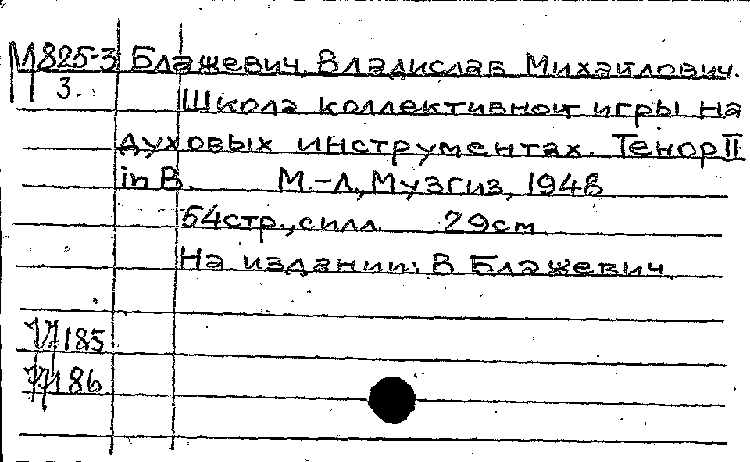 М825-3 Блажевич, Владислав Михайлович.
3. Школа коллективной игры на
духовых инструментах. Тенор II
in B. М.-Л., Музгиз, 1948
54стр., силл 29см
На издании: В Блажевич
185
186